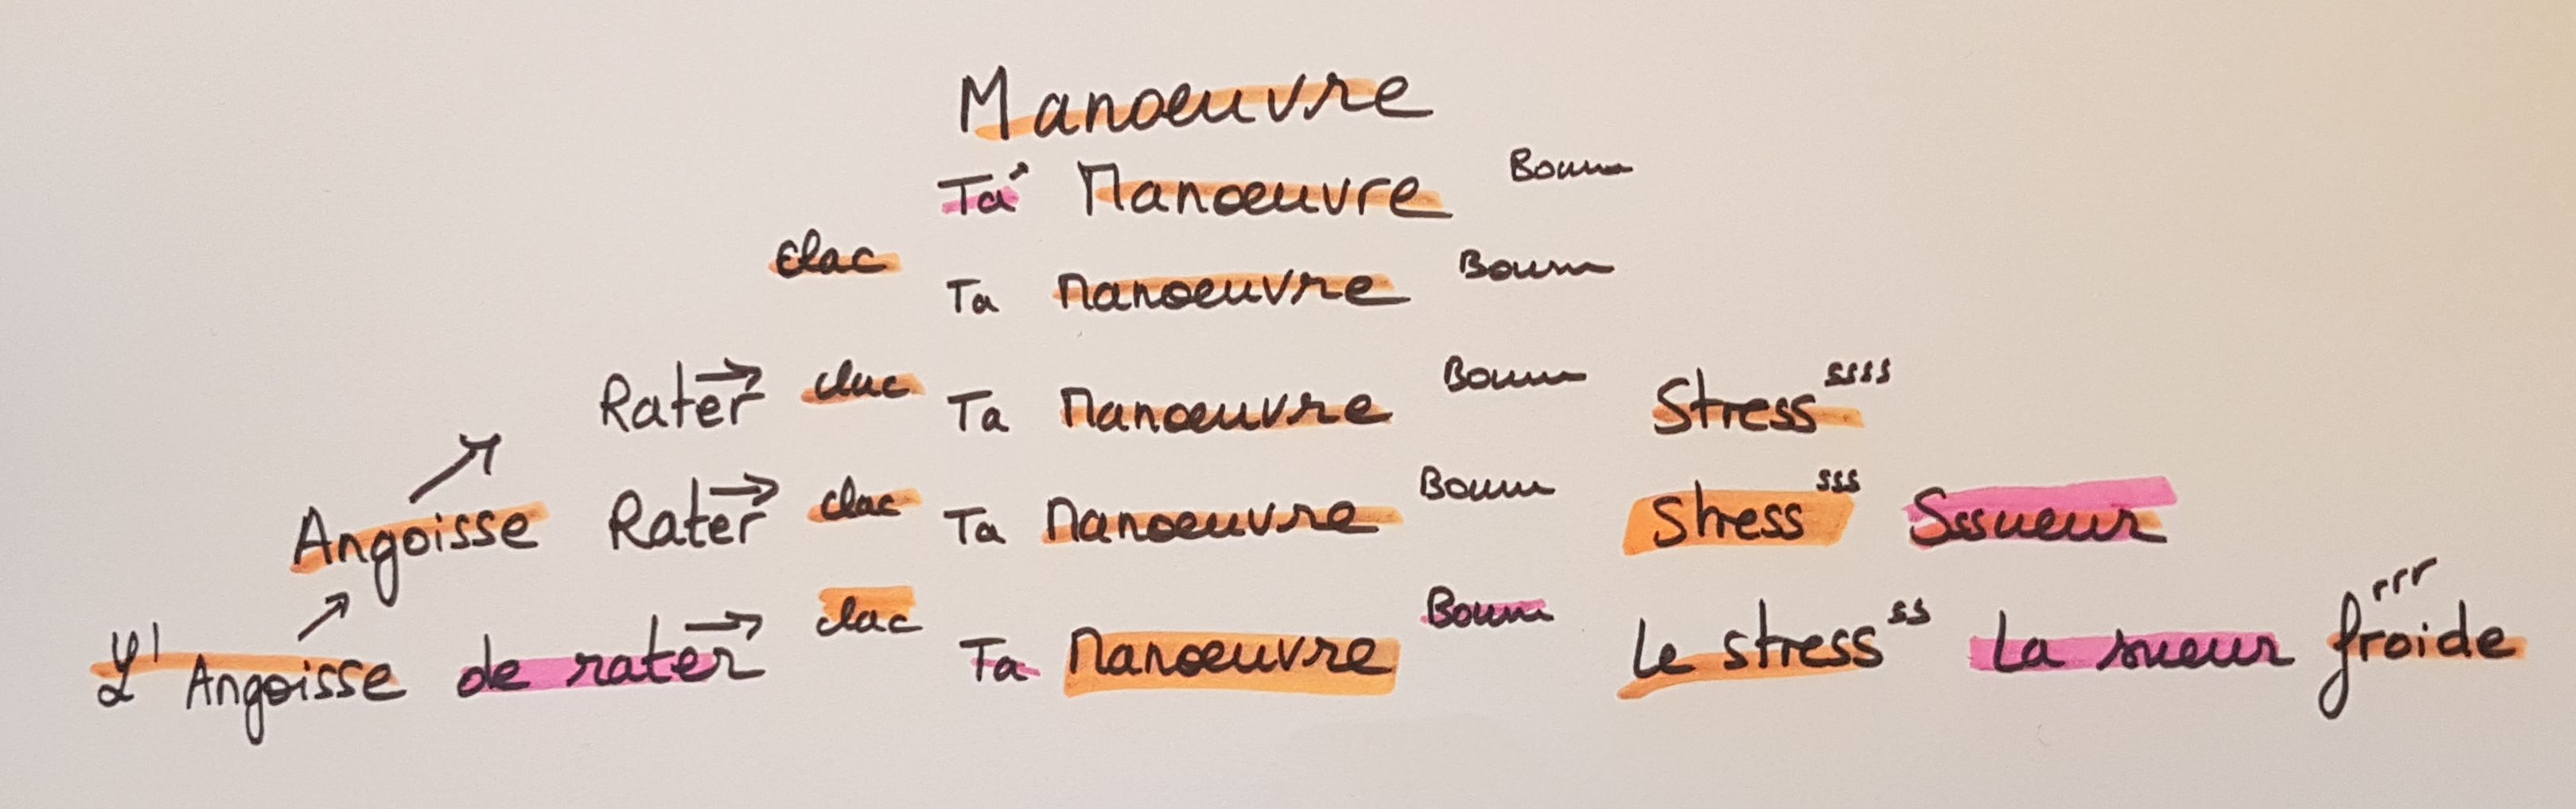 Manoeuvre
Ta Manoeuvre Boum
clac Ta Manoeuvre Boum
Rater → clac Ta Manoeuvre Boum Stress ssss
Angoisse ↗ Rater → clac Ta Manoeuvre Boum Stress sss Sssueur
L'Angoisse ↗ de rater → clac Ta Manoeuvre Boum Le stress ss La sueur froide rrr